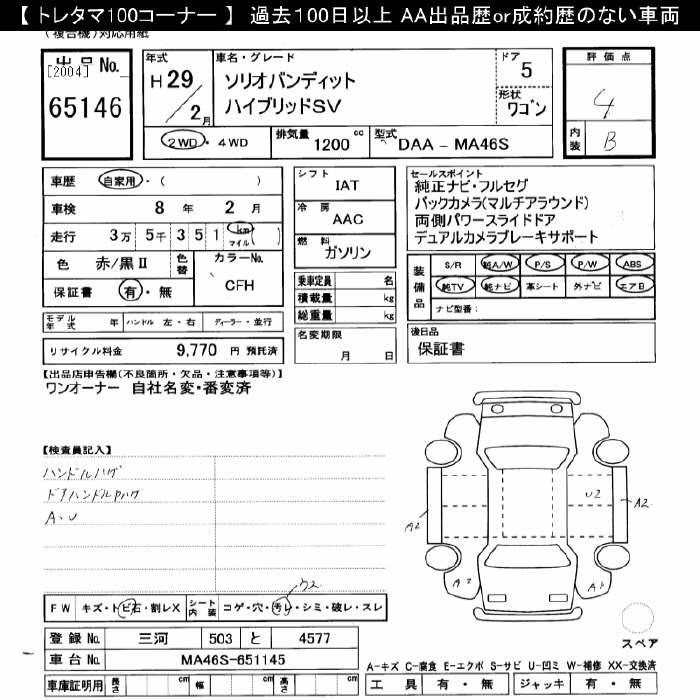 【 トレタマ100コーナー 】 過去100日以上 AA出品歴or成約歴のない車両
(複合機)対応用紙
出品 No.
[2004]
65146
年式
H 29 / 2 月
車名・グレード
ソリオバンディット
ハイブリッドSV
ドア
5
形状
ワゴン
評価点
4
内装
B
2WD・4WD
排気量 1200 cc
型式 DAA - MA46S
車歴 自家用・( )
車検 8 年 2 月
走行 3万 5千 3 5 1 km マイル ( )
色 赤/黒Ⅱ
色替
カラーNo.
CFH
保証書 有・無
シフト
IAT
冷房
AAC
燃料
ガソリン
乗車定員 名
積載量 kg
総重量 kg
セールスポイント
純正ナビ・フルセグ
バックカメラ(マルチアラウンド)
両側パワースライドドア
デュアルカメラブレーキサポート
装備品
S/R 純A/W P/S P/W ABS
純TV 純ナビ 革シート 外ナビ エアB
ナビ型番:
モデル年式 年 ハンドル 左・右 ディーラー・並行
リサイクル料金 9,770 円 預託済
名変期限
月 日
後日品
保証書
【出品店申告欄(不良箇所・欠品・注意事項等)】
ワンオーナー 自社名変・番変済
【検査員記入】
ハンドルハゲ
ドアハンドルPハゲ
A、U
U2
A2
A2
FW キズ・トビ石・割レX
シート内装 コゲ・穴・汚レ・シミ・破レ・スレ
スペア
登録No. 三河 503 と 4577
車台No. MA46S-651145
車庫証明用 長さ cm 幅 cm 高さ cm
A-キズ C-腐食 E-エクボ S-サビ U-凹ミ W-補修 XX-交換済
工具 有・無 ジャッキ 有・無